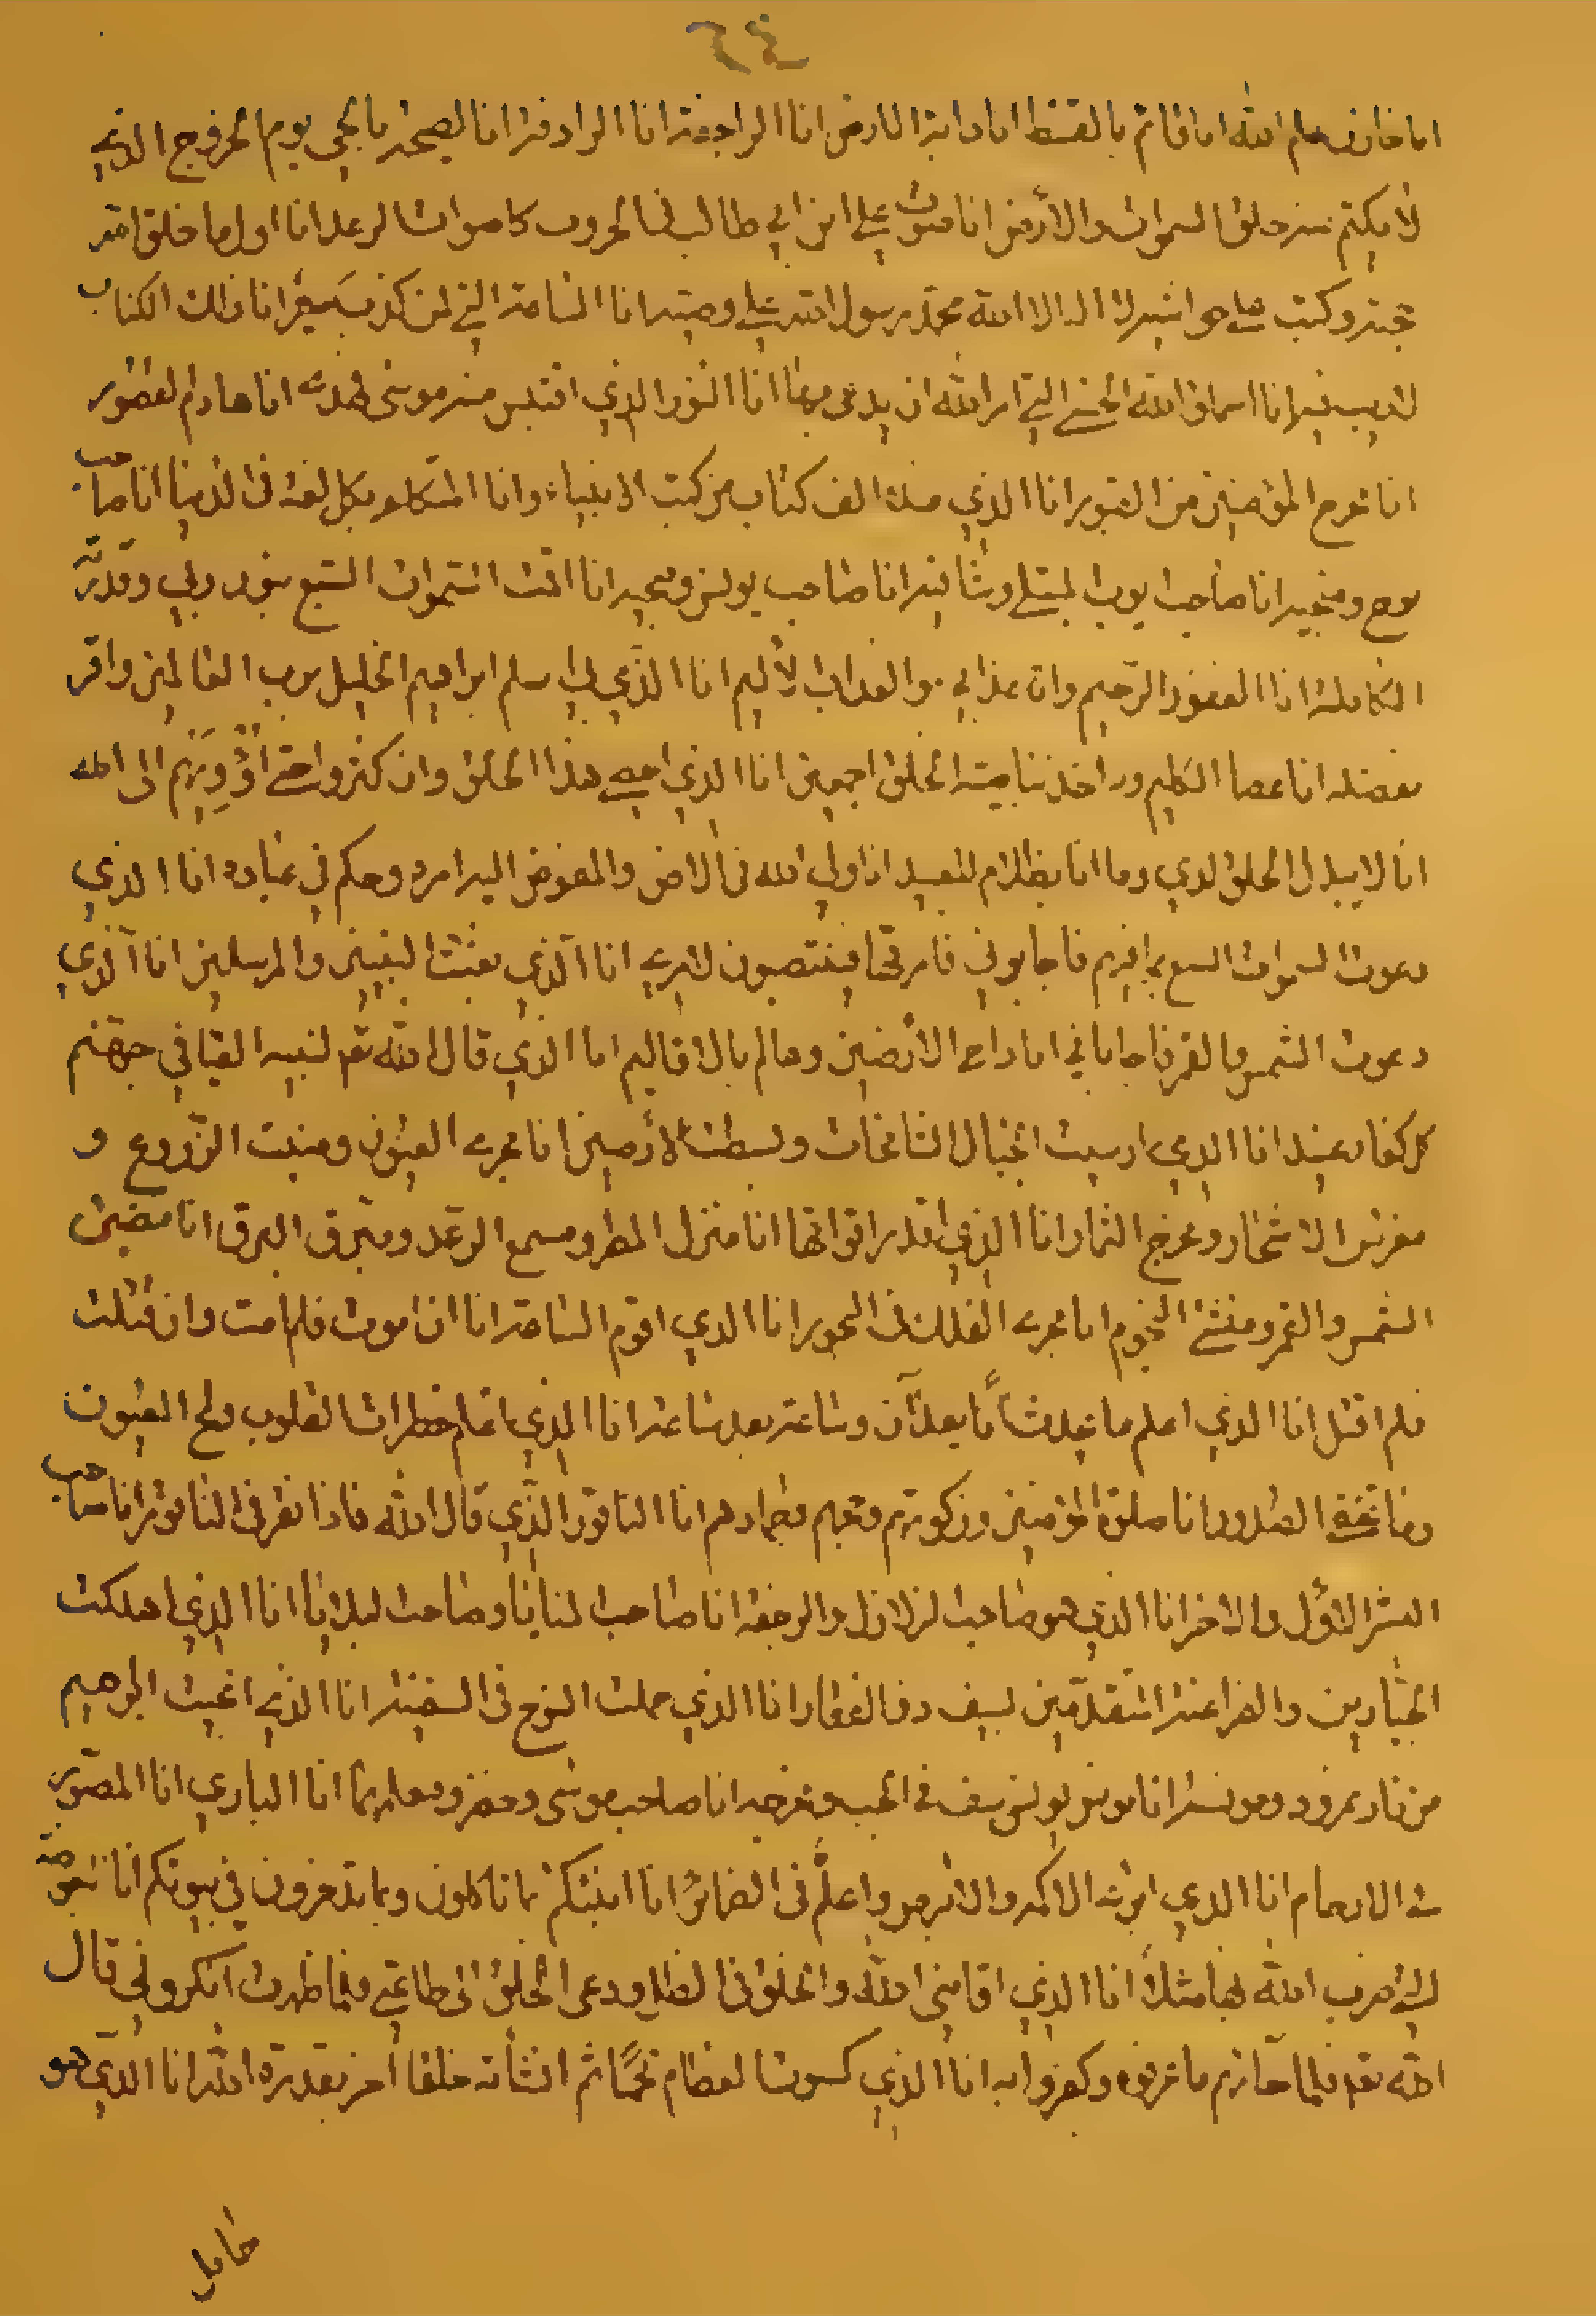 ٦٤
انا خازن علم الله انا قائم بالقسط انا دابة الارض انا الراجفة انا الرادفة انا الصيحة بالحق يوم الخروج الذي
لا يكتم عنه خلق السموات والارض انا صوت علي ابن ابي طالب في الحروب كاصوات الرعد انا اول ما خلق الله
حجته وكتب على حواشيه لا اله الا الله محمد رسول الله علي وصيه انا الساعة التي لمن كذب سعيرا انا ذلك الكتاب
لا ريب فيه انا اسماء الله الحسنى التي امر الله ان يدعى بها انا النور الذي اقتبس منه موسى فهدى انا هادم القصور
انا مخرج المؤمنين من القبور انا الذي عنده الف كتاب من كتب الانبياء وانا المتكلم بكل لغة في الدنيا انا صاحب
نوح ومنجيه انا صاحب ايوب المبتلى وشافيه انا صاحب يونس ومنجيه انا اقمت السموات السبع بنور ربي وقدرته
الكاملة انا الغفور الرحيم وان عذابي هو العذاب الاليم انا الذي بي اسلم ابراهيم الخليل لرب العالمين واقر
بفضله انا عصا الكليم وبه اخذ بناصية الخلق اجمعين انا الذي احصي هذا الخلق وان كثروا حتى اؤديهم الى الله
انا لا يبدل الخلق لدي وما انا بظلام للعبيد انا ولي الله في الارض والمفوض اليه امره وحكم في عباده انا الذي
دعوت السموات السبع فاجابوني فامرتها فينتصبون لامري انا الذي بعثت النبيين والمرسلين انا الذي
دعوت الشمس والقمر فاجاباني انا داحي الارضين وعالم بالاقاليم انا الذي قال الله تعم لنبيه القيا في جهنم
كل كفار عنيد انا الذي ارسيت الجبال الشامخات وبسطت الارضين انا مجري العيون ومنبت الزروع و
مغرس الاشجار ومخرج الثمار انا الذي اقدر اقواتها انا منزل المطر ومسمع الرعد ومبرق البرق انا مضيئ
الشمس والقمر ومنشئ النجوم انا مجري الفلك في البحور انا الذي اقوم الساعة انا ان اموت فلم امت وان قتلت
فلم اقتل انا الذي اعلم ما يحدث آنا بعد آن وساعة بعد ساعة انا الذي اعلم خطرات القلوب ولمح العيون
وما تخفي الصدور انا صلوة المؤمنين وزكوتهم وحجهم وجهادهم انا الناقور الذي قال الله فاذا نقر في الناقور انا صاحب
النشر الاول والاخر انا الذي هو صاحب الزلازل والرجفة انا صاحب المنايا وصاحب البلايا انا الذي اهلكت
الجبارين والفراعنة المتقدمين بسيف ذي الفقار انا الذي حملت النوح في السفينة انا الذي انجيت ابرهيم
من نار نمرود ومونسه انا مونس يوسف في الجب ومخرجه انا صاحب موسى وخضر ومعلمهما انا الباري انا المصور
في الارحام انا الذي ابرئ الاكمه والابرص واعلم في الضمائر انا انبئكم بما تاكلون وبما تدخرون في بيوتكم انا البعوضة
التي ضرب الله بها مثلا انا الذي اقامني الله والخلق في الظل ودعى الخلق الى طاعتي فلما ظهرت انكروني قال
الله تعم فلما جائهم ما عرفوه وكفروا به انا الذي كسوت العظام لحما ثم انشأته خلقا اخر بقدرة الله انا الذي هو
حامل